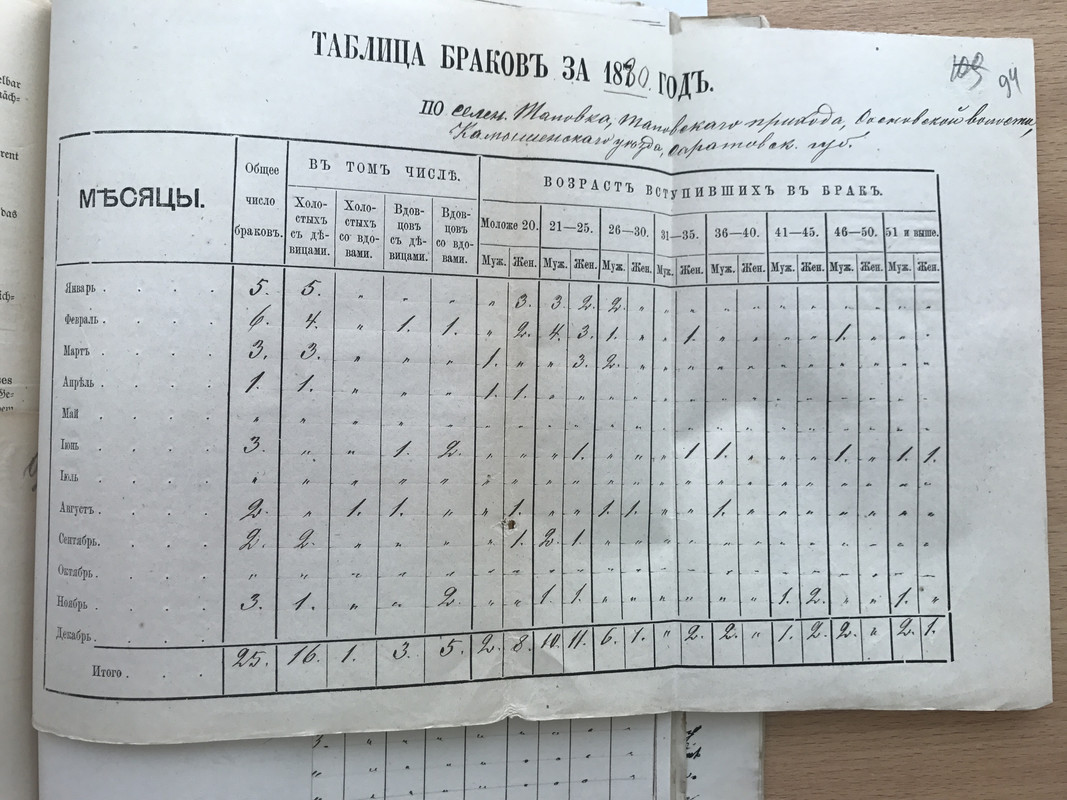 ТАБЛИЦА БРАКОВЪ ЗА 1880 ГОДЪ.
94
ПО селен. Таповка, Таповскаго прихода, Сосновской волости,
Камышинскаго уѣзда, Саратовск. губ.
МѢСЯЦЫ. Общее число браковъ. ВЪ ТОМЪ ЧИСЛѢ. ВОЗРАСТЪ ВСТУПИВШИХЪ ВЪ БРАКЪ.
Холостыхъ съ дѣвицами. Холостыхъ со вдовами. Вдовцовъ съ дѣвицами. Вдовцовъ со вдовами. Моложе 20. 21—25. 26—30. 31—35. 36—40. 41—45. 46—50. 51 и выше.
Муж. Жен. Муж. Жен. Муж. Жен. Муж. Жен. Муж. Жен. Муж. Жен. Муж. Жен. Муж. Жен.
Январь . . . . 5. 5. „ „ „ „ 3. 3 2. 2. „ „ „ „ „ „ „ „ „ „ „
Февраль . . . . 6. 4. „ 1. 1. „ 2. 4. 3. 1. „ „ 1. „ „ „ „ 1. „ „ „
Мартъ . . . . 3. 3. „ „ „ 1. „ „ 3. 2. „ „ „ „ „ „ „ „ „ „ „
Апрѣль . . . . 1. 1. „ „ „ 1. 1. „ „ „ „ „ „ „ „ „ „ „ „ „ „
Май . . . . „ „ „ „ „ „ „ „ „ „ „ „ „ „ „ „ „ „ „ „ „
Іюнь . . . . 3. „ „ 1. 2. „ „ „ 1. „ „ „ 1 1. „ „ „ 1. „ 1. 1.
Іюль . . . . „ „ „ „ „ „ „ „ „ „ „ „ „ „ „ „ „ „ „ „ „
Августъ . . . . 2. „ 1. 1. „ „ 1. „ „ 1. 1. „ „ 1. „ „ „ „ „ „ „
Сентябрь. . . . 2. 2. „ „ „ „ 1. 2. 1. „ „ „ „ „ „ „ „ „ „ „ „
Октябрь . . . . „ „ „ „ „ „ „ „ „ „ „ „ „ „ „ „ „ „ „ „ „
Ноябрь . . . . 3. 1. „ „ 2. „ „ 1. 1. „ „ „ „ „ „ 1. 2. „ „ 1. „
Декабрь . . . .
Итого . . . 25. 16. 1. 3. 5. 2. 8. 10. 11. 6. 1. „ 2. 2. „ 1. 2. 2. „ 2. 1.